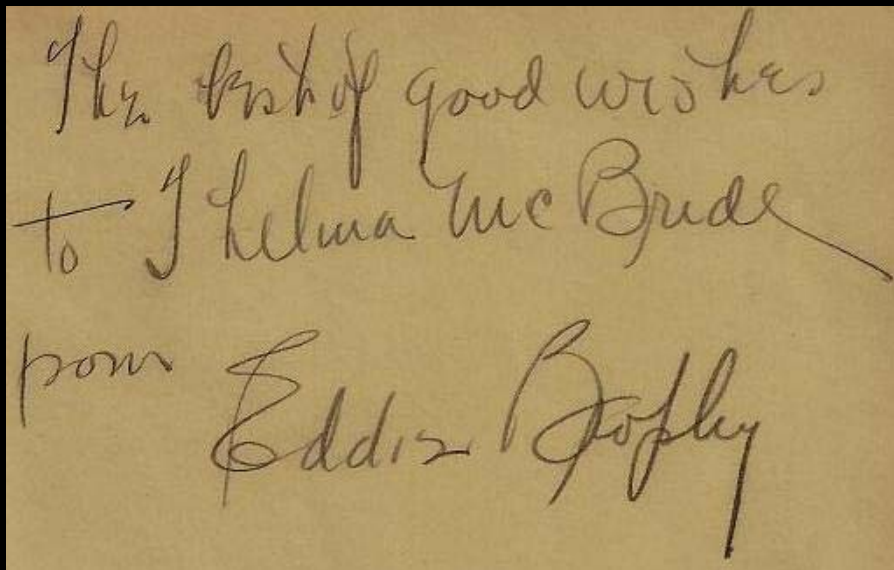 The best of good wishes
to Thelma McBride
from Eddie Brophy